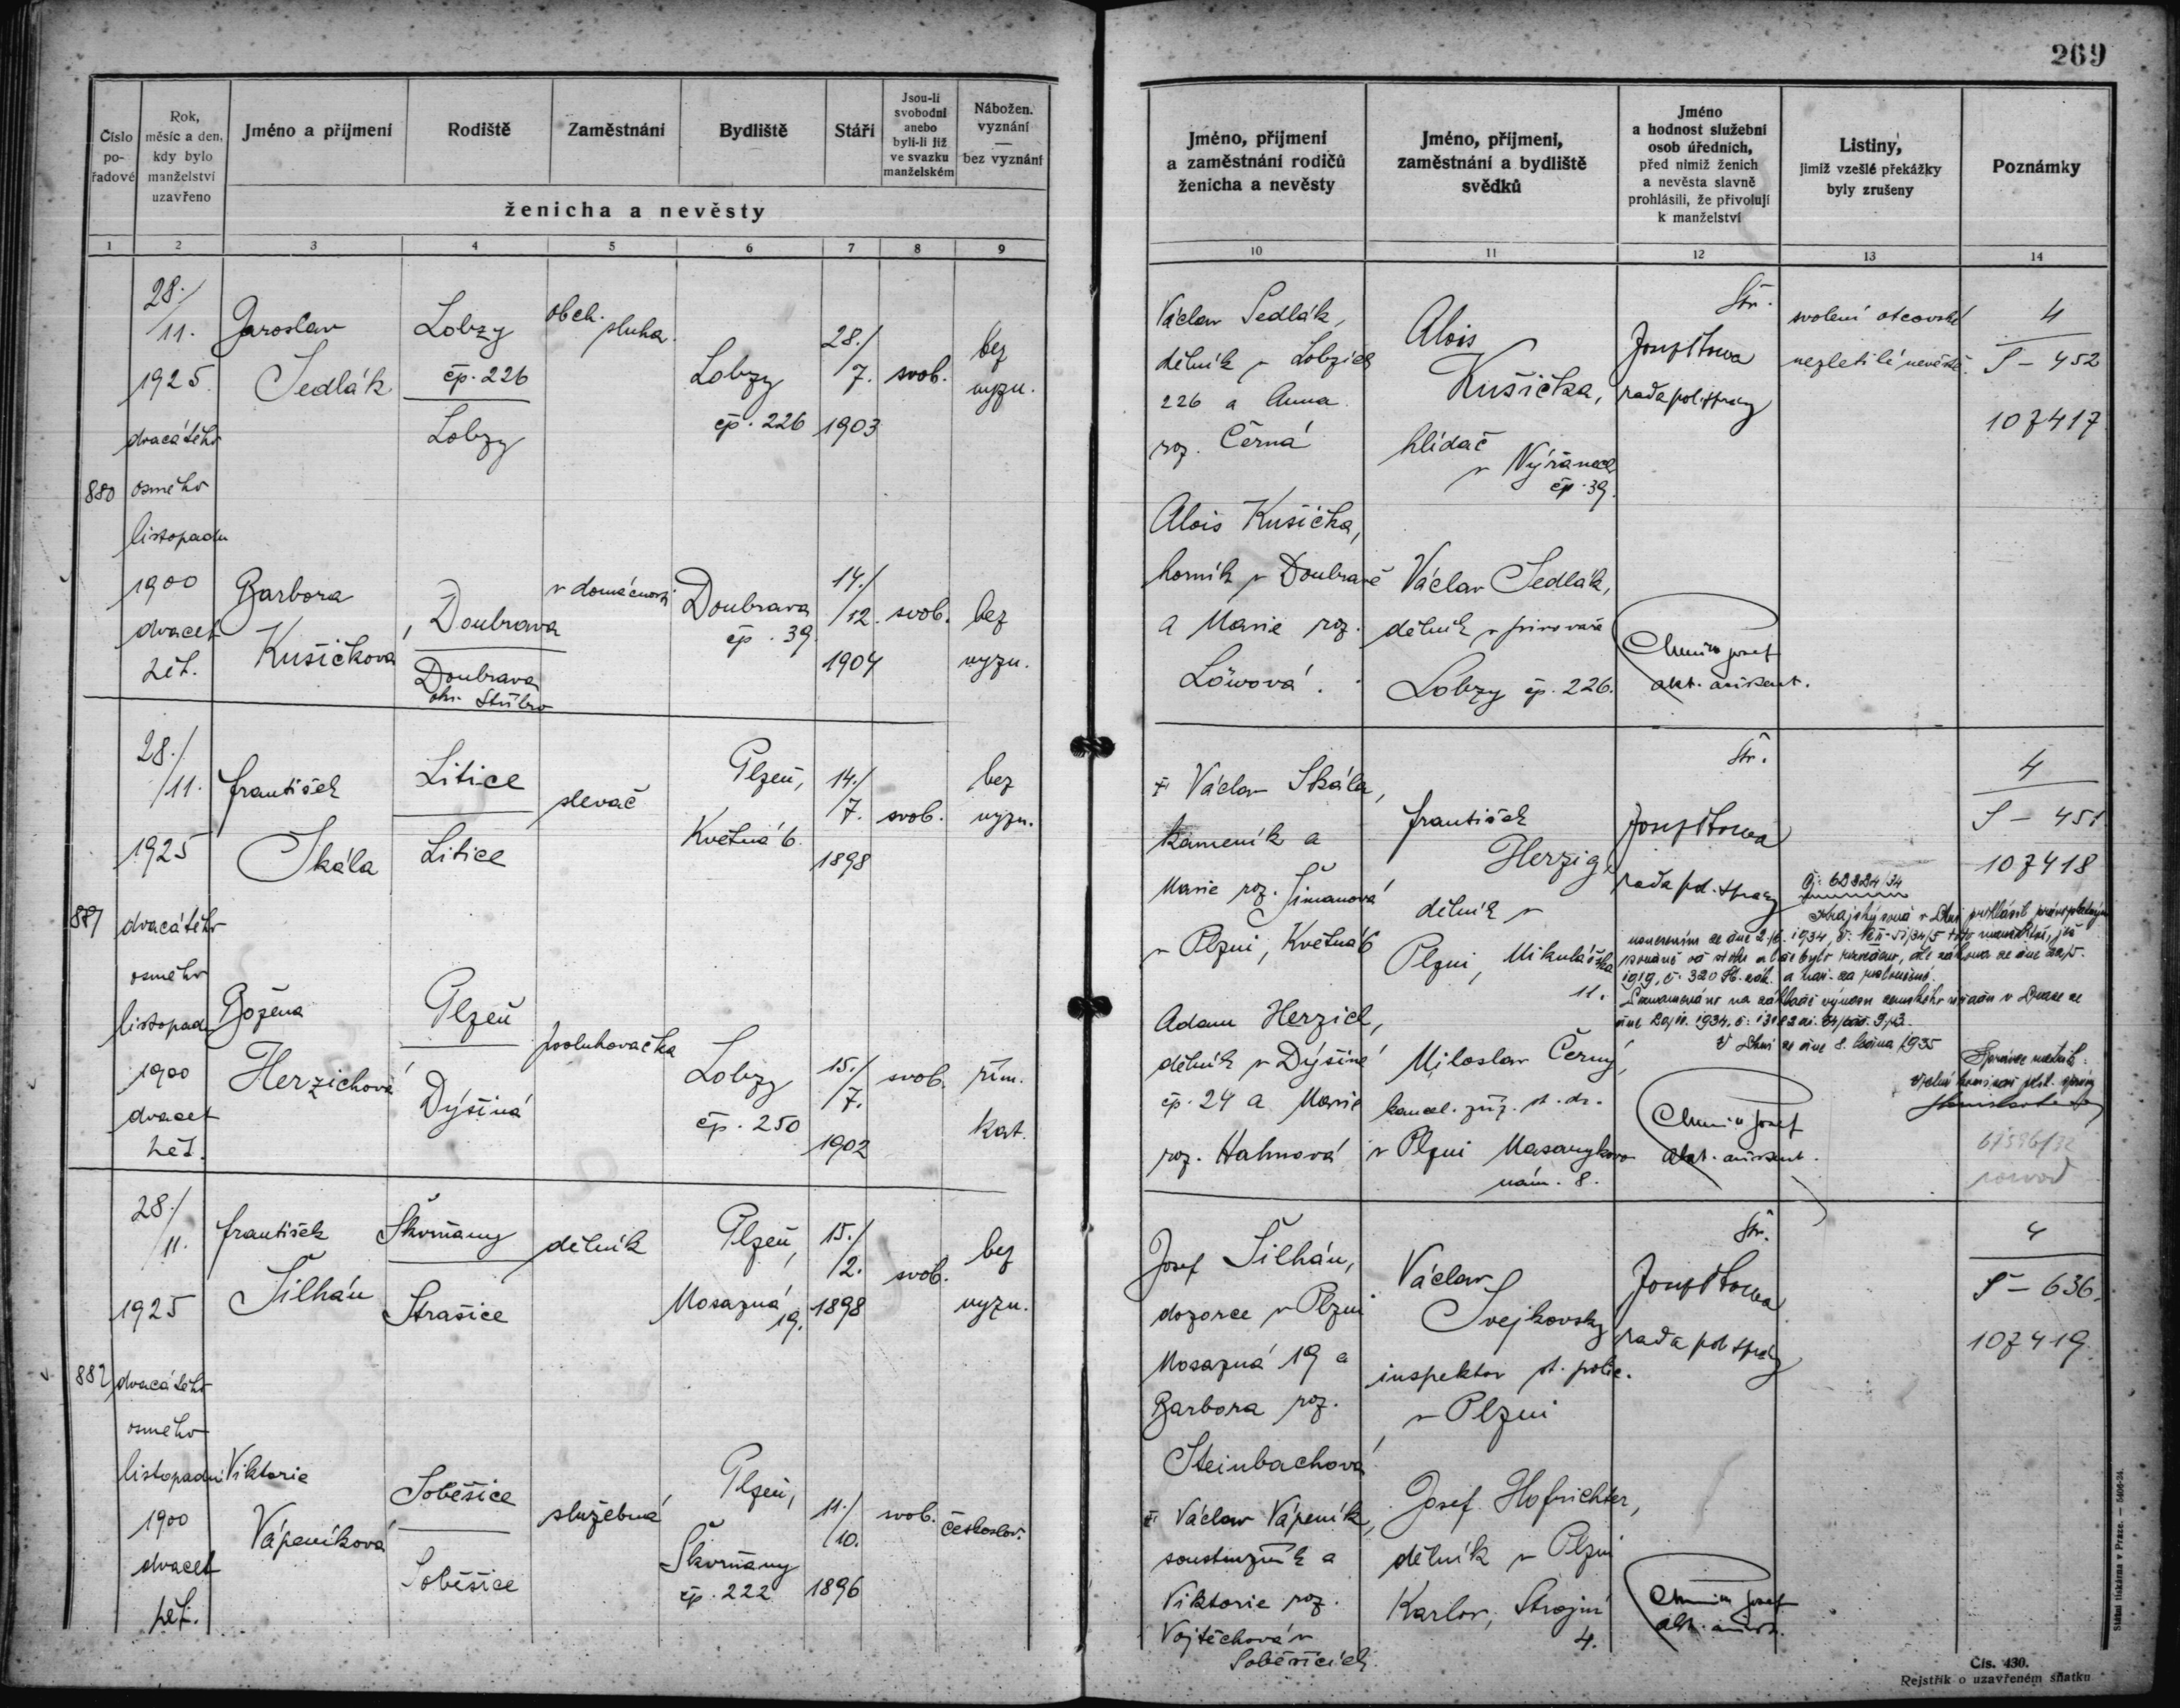 269
Číslo pořadové
Rok, měsíc a den, kdy bylo manželství uzavřeno
Jméno a příjmení
Rodiště
Zaměstnání
Bydliště
Stáří
Jsou-li svobodni anebo byli-li již ve svazku manželském
Nábožen. vyznání — bez vyznání
ženicha a nevěsty
Jméno, příjmení a zaměstnání rodičů ženicha a nevěsty
Jméno, příjmení, zaměstnání a bydliště svědků
Jméno a hodnost služební osob úředních, před nimiž ženich a nevěsta slavně prohlásili, že přivolují k manželství
Listiny, jimiž vzešlé překážky byly zrušeny
Poznámky
1 2 3 4 5 6 7 8 9 10 11 12 13 14
880
28./11.
1925
dvacátého
osmého
listopadu
1900
dvacet
pět.
Jaroslav
Sedlák
Lobzy
čp. 226
Lobzy
obch.
sluha.
Lobzy
čp. 226
28./7.
1903
svob.
bez
vyzn.
Barbora
Kušičková
Doubrava
Doubrava
okr. Stříbro
v domácnosti
Doubrava
čp. 39.
14./12.
1904
svob.
bez
vyzn.
Václav Sedlák,
dělník v Lobzích
226 a Anna
roz. Černá
Alois Kušička,
horník v Doubravě
a Marie roz.
Löwová.
Alois
Kušička,
hlídač
v Nýřanech
čp. 39.
Václav Sedlák,
dělník v pivovaře
Lobzy čp. 226.
Josef
rada pol. správy
Josef
akt. asistent.
svolení otcovské
nezletilé nevěstě.
4
S - 452
107417
881
28./11.
1925
dvacátého
osmého
listopadu
1900
dvacet
pět.
František
Skála
Litice
Litice
slevač
Plzeň,
Květná 6.
14./7.
1898
svob.
bez
vyzn.
Božena
Herzichová
Plzeň
Dýšiná
posluhovačka
Lobzy
čp. 250
15./7.
1902
svob.
řím.
kat.
Václav Skála,
kameník a
Marie roz. Šimanová
v Plzni, Květná 6
Adam Herzich,
dělník v Dýšině
čp. 24 a Marie
roz. Hahnová
František
Herzig,
dělník v
Plzni, Mikulášská
11.
Miloslav Černý,
kancel. zříz. st. dr.
v Plzni Masarykovo
nám. 8.
Josef
rada pol. správy
Josef
akt. asistent.
1919, č. 320 Sb. zák. a nař. za rozloučené.
8. ledna 1935
4
S - 451
107418
882
28./11.
1925
dvacátého
osmého
listopadu
1900
dvacet
pět.
František
Šilhán
Škvrňany
Strašice
dělník
Plzeň,
Mosazná
19.
15./2.
1898
svob.
bez
vyzn.
Viktorie
Vápeníková
Soběšice
Soběšice
služebná
Plzeň,
Škvrňany
čp. 222
11./10.
1896
svob.
českoslov.
Josef Šilhán,
dozorce v Plzni
Mosazná 19 a
Barbora roz.
Steinbachová
Václav Vápeník,
soustružník a
Viktorie roz.
Vojtěchová v
Soběšicích.
Václav
Svejkovský
inspektor st. polic.
v Plzni
Josef Hofrichter,
dělník v Plzni
Karlov, Strojní
4.
Josef
rada pol. správy
Josef
akt. asist.
4
S - 636.
107419.
Státní tiskárna v Praze. — 5406-24.
Čís. 430.
Rejstřík o uzavřeném sňatku